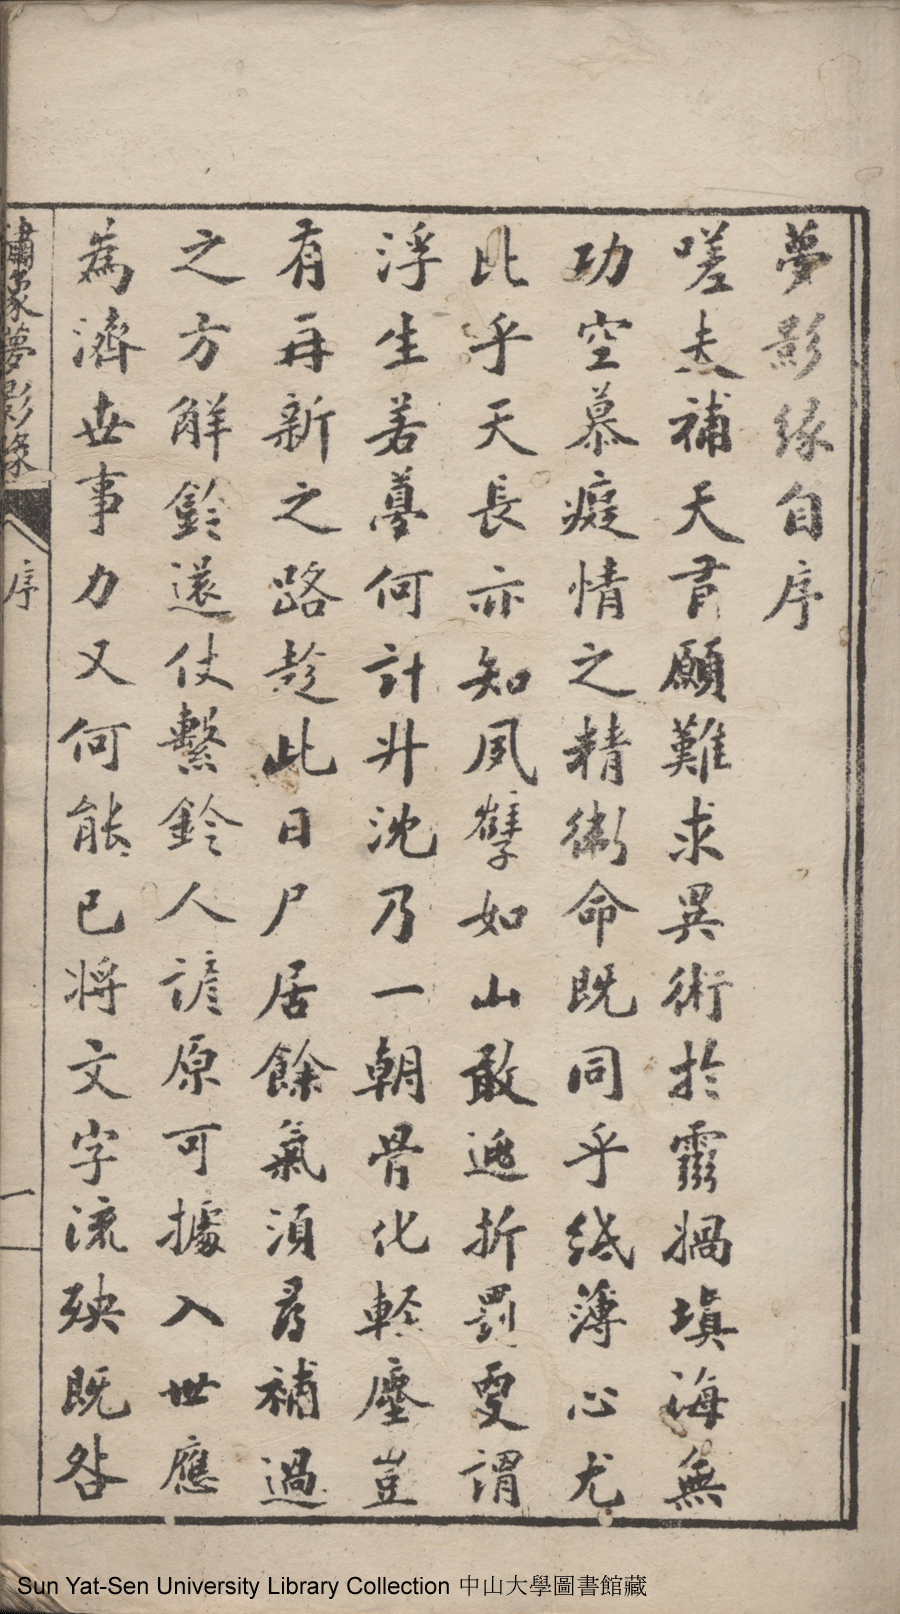 夢影緣自序
嗟夫補天有願難求異術於靈媧填海無
功空慕癡情之精衛命既同乎紙薄心尤
比乎天長亦知夙孽如山敢逃折罰更謂
浮生若夢何計升沈乃一朝骨化輕塵豈
有再新之路趁此日尸居餘氣須尋補過
之方解鈴還仗繫鈴人諺原可據入世應
為濟世事力又何能已將文字流殃既咎
繡像夢影緣
序
一
Sun Yat-Sen University Library Collection 中山大學圖書館藏